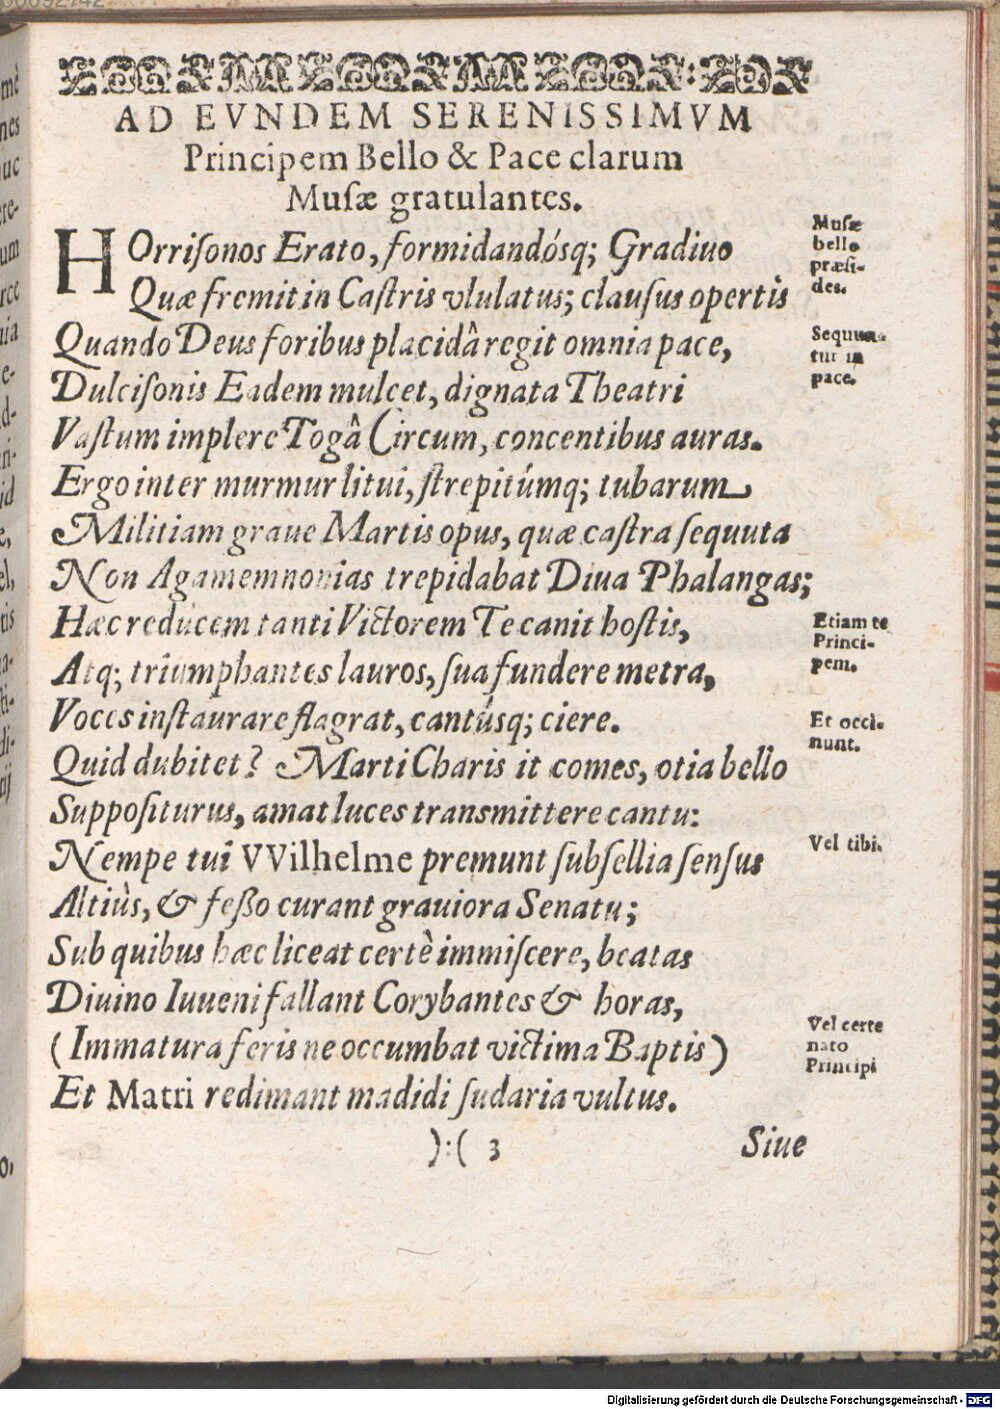 AD EVNDEM SERENISSIMVM
Principem Bello & Pace clarum
Muſæ gratulantes.
HOrriſonos Erato, formidandósq; Gradiuo
Quæ fremit in Caſtris vlulatus; clauſus opertis
Quando Deus foribus placidâ regit omnia pace,
Dulciſonis Eadem mulcet, dignata Theatri
Vaſtum implere Togâ Circum, concentibus auras.
Ergo inter murmur litui, ſtrepitúmq; tubarum
Militiam graue Martis opus, quæ caſtra ſequuta
Non Agamemnonias trepidabat Diua Phalangas;
Hæc reducem tanti Victorem Te canit hoſtis,
Atq; triumphantes lauros, ſua fundere metra,
Voces inſtaurare flagrat, cantúsq; ciere.
Quid dubitet? Marti Charis it comes, otia bello
Suppoſiturus, amat luces transmittere cantu:
Nempe tui VVilhelme premunt ſubſellia ſenſus
Altiùs, & feßo curant grauiora Senatu;
Sub quibus hæc liceat certè immiſcere, beatas
Diuino Iuueni fallant Corybantes & horas,
(Immatura feris ne occumbat victima Baptis)
Et Matri redimant madidi ſudaria vultus.
):( 3 Siue
Muſæ
bello
præſi-
des.
Sequun-
tur in
pace.
Etiam te
Princi-
pem.
Et occi-
nunt.
Vel tibi.
Vel certe
nato
Principi
Digitalisierung gefördert durch die Deutsche Forschungsgemeinschaft - DFG